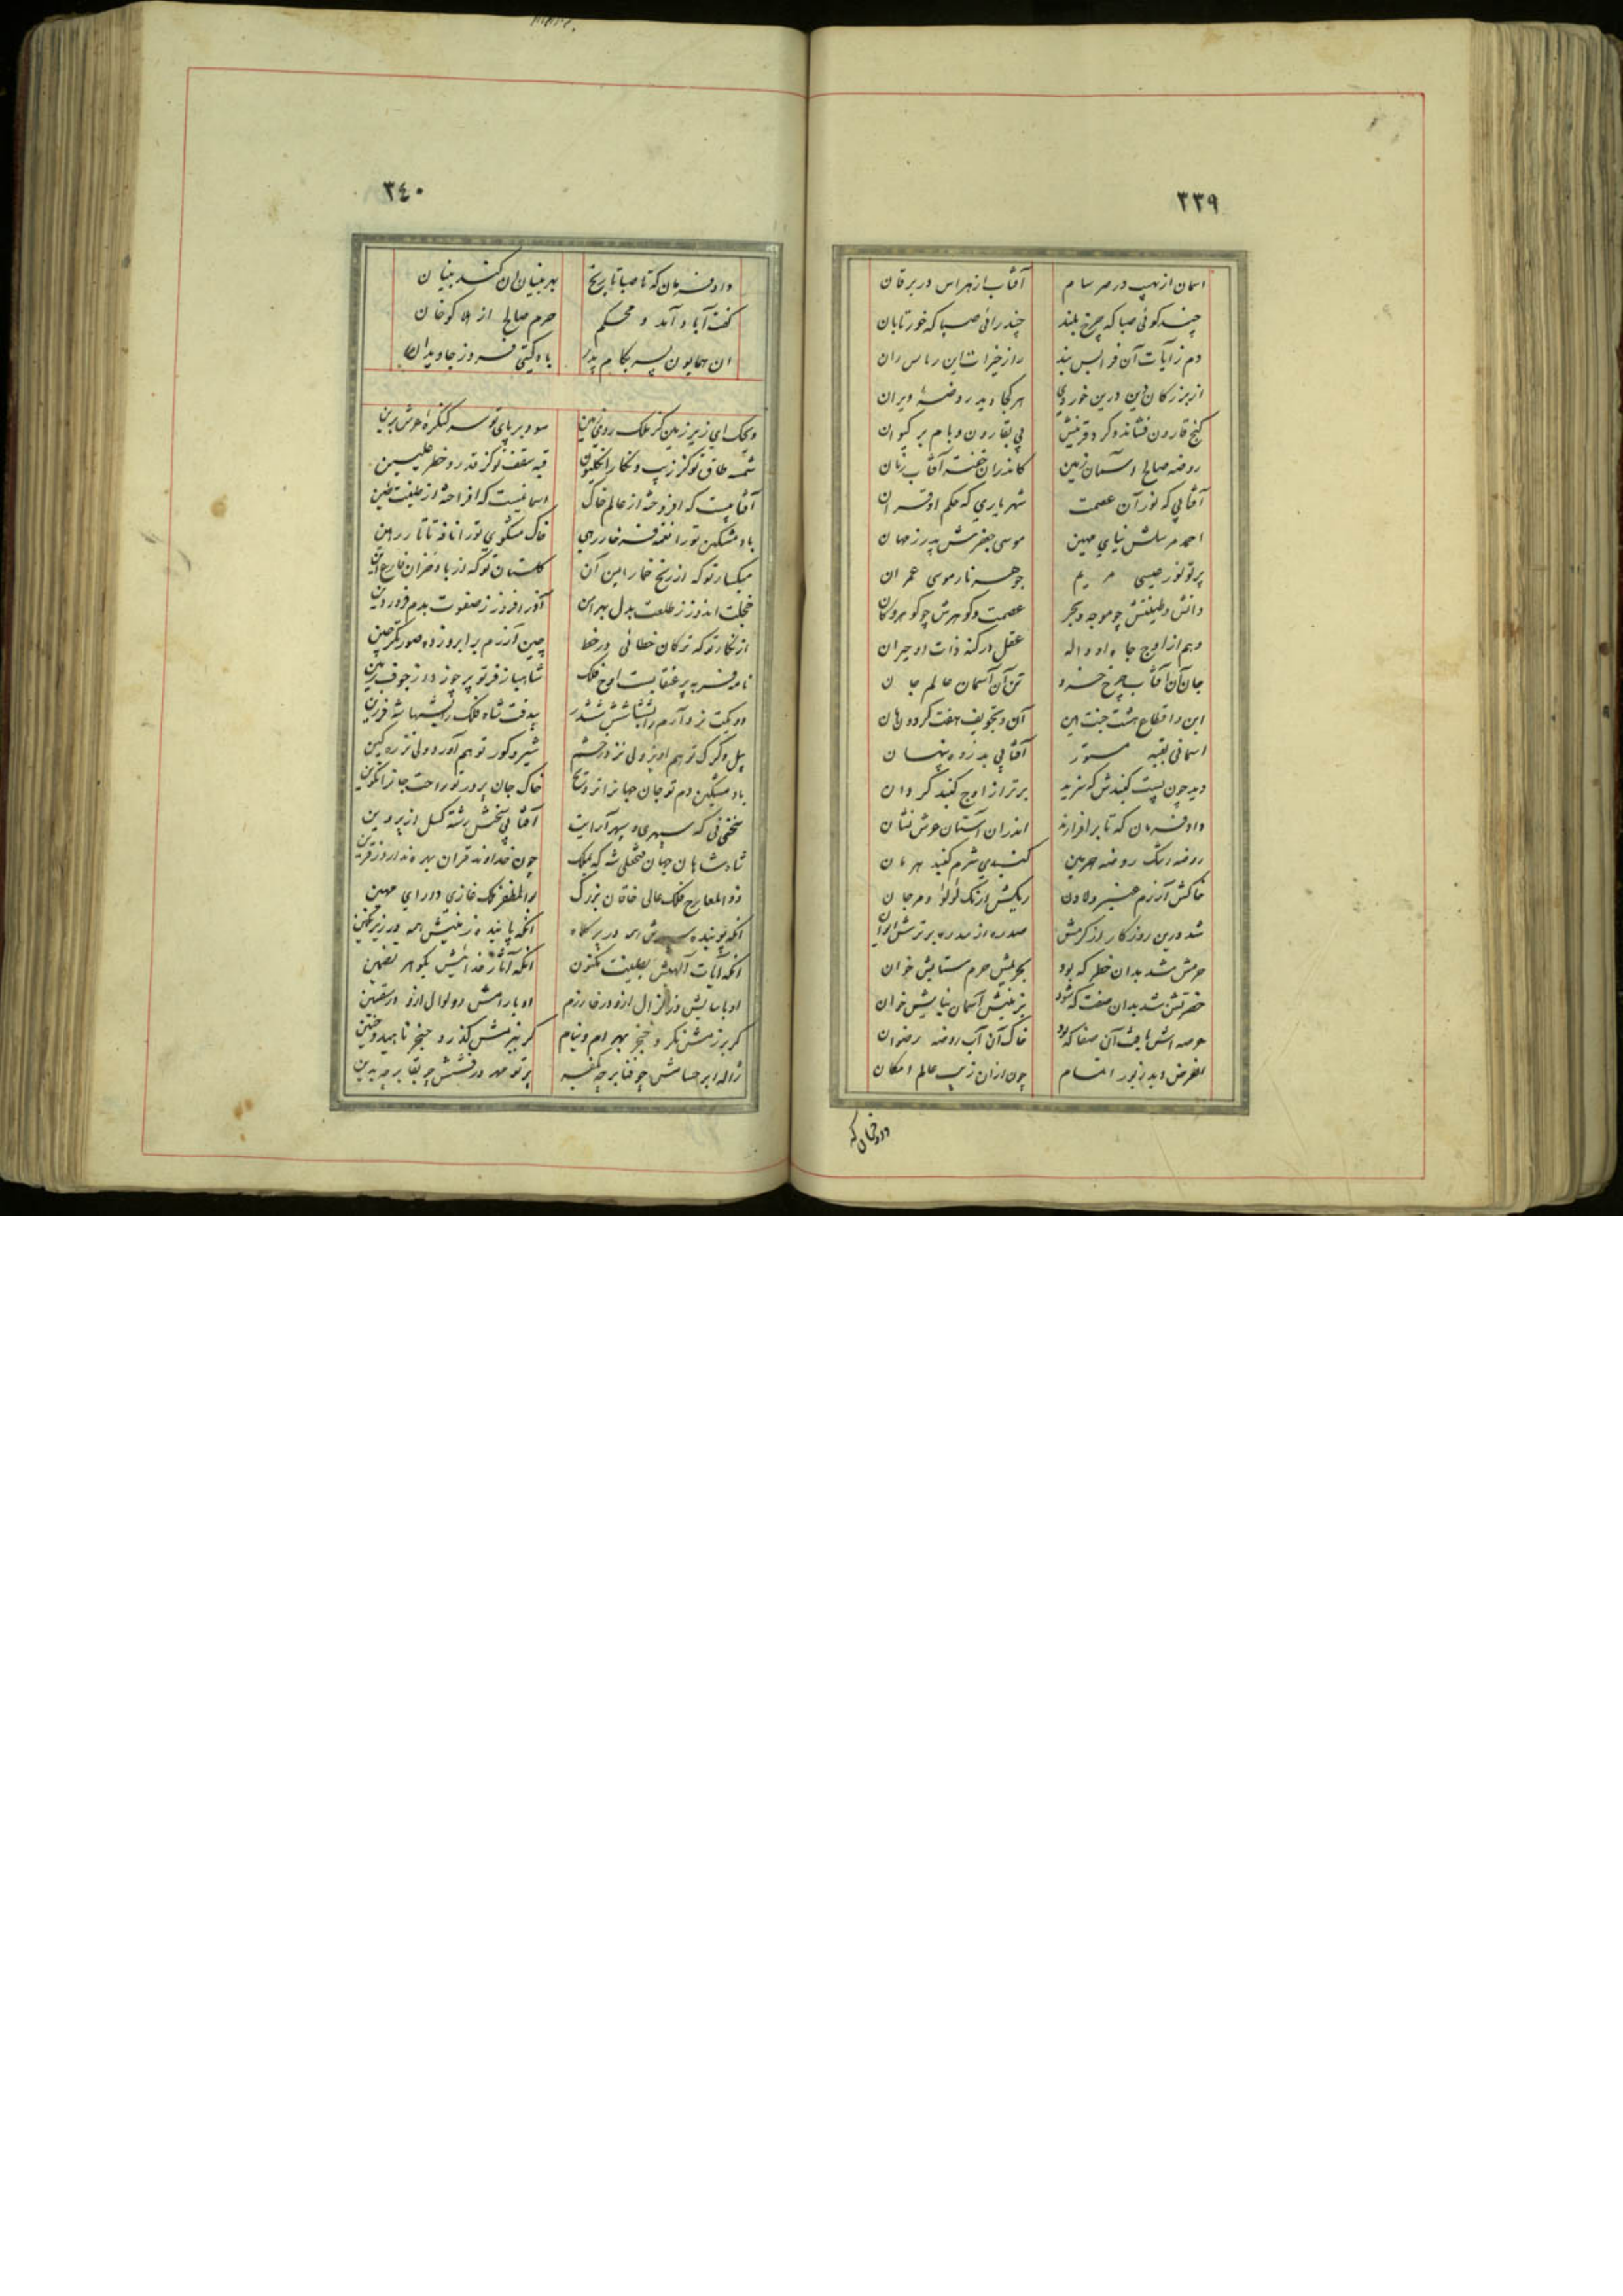 ٣٣٩
اسمان از نهیب در سرسام آفتاب از هراس در یرقان
چند کوئی صبا که چرخ بلند چند رانی صبا که خور تابان
دم ز آیات آن فرابس بند راز خیرات این رباس ران
از بزرکان دین درین خور دی هر کجا دید روضهٔ ویران
کنج قارون فشاند و کرد قرینش بی بقارون و بام بر کیوان
روضه صالح آسمان زمین کاندران خفته آفتاب زمان
آفتابی که نور آن عصمت شهریاری که حکم او قران
احمد مرسلش نیای مهین موسی جعفرش پدر ز مهان
پرتو نور عیسی مریم جوهر نار موسی عمران
دانش و طینتش چو موجه و بحر عصمت و کوهرش چو کوهر و کان
وهم از اوج جاه او واله عقل در کنه ذات او حیران
جان آن آفتاب چرخ خرد تن آن آسمان عالم جان
این در اقطاع هشت جنت این آن در تجویف هفت کردون آن
اسمانی بقبه مستور آفتابی بذروه پنهان
دید چون پست کنبدش که سزید برتر از اوج کنبد کردان
داد فرمان که تا برافرازند اندران آستان عرش نشان
روضه رشک روضه حرمین کنبدی شرم کنبد هرمان
خاکش آزرم عنبر و لادن ریکش ارژنک لولو و مرجان
شد درین روزکار از کرمش صدره از سدره برترش ایوان
حرمش شد بدان خطر که بود بحریمش حرم ستایش خوان
حضرتش شد بدان صفت که شود بزمینش آسمان نیایش خوان
عرصه اش یافت آن صفا که بود خاک آن آب روضه رضوان
الغرض دید زیور اتمام چون ازان زیب عالم امکان
داد فرمان که
٣٤٠
داد فرمان که تا صبا تاریخ بهر بنیان آن کند بنیان
گفت آباد آمد و محکم حرم صالح از کوخان
ان همایون پسر بکام پدر باد کیتی فروز جاویدان
ویحک ای زیر زمین کز فلک روی زمین سود بر پای تو سر کنکره عرش برین
شمسه طاق تو کز زیب و نکار انکلیون قبه سقف تو کز قدر و خطر علیین
آفتابیست که افروخته از عالم خاک اسمانیست که افراخته از طینت طین
باد مشکین تو را نغمه فرخار رهی خاک مشکوی تو را نافه تاتار رهین
میکسار تو که از رنج خمار ایمن آن کلستان تو که از باد خزان فارغ این
خجلت اندوز ز طلعت بدل بهرامن آذر افروز ز صفوت بدم فروردین
از نکار تو که ترکان خطائی در خط چین آزرم بر ابرو زده صورتکر چین
نامد فربه پر عنقا بست اوج فلک شاهباز فر تو پر چو زد از جوف زمین
دو بکت نرد آرم را شش ششدر بیدقت شاه فلک را بشهامت فرزین
پیل و کرک تو بهم اویز ولی نز در خشم شیر و کور تو بهم آورد ولی نز ره کین
باد مشکین دم تو جان جهانرا تزویج خاک جان پرور تو راحت جانرا تکوین
تختی که سپهری و سپهر آرایت آفتابی بخش رشته کسل از پروین
شاه شاهان جهان فتحعلی شه که بملک چون خداوند قران بهره ندارد ز قرین
ذو المعارج فلک عالی خاقان بزرک بو المظفر ملک غازی دارای مهین
انکه پوینده سپهرش همه در پرکاه انکه پاینده زمینش همه در زیر نکین
انکه آیات آلهیش بطینت مکنون انکه آثار خدائیش بکوهر تضمین
او باسایش در زلزال ازو در خارزم او بآرامش و ولوال ازو در سقسین
کر برزمش نکرد خنجر بهرام و نیام کر ببزمش کذرد حنجر ناهید و حنین
ژاله ابر حسامش چو فنا بر چه کفیده پرتو مهر درفشش چو بقا بر چه بدین